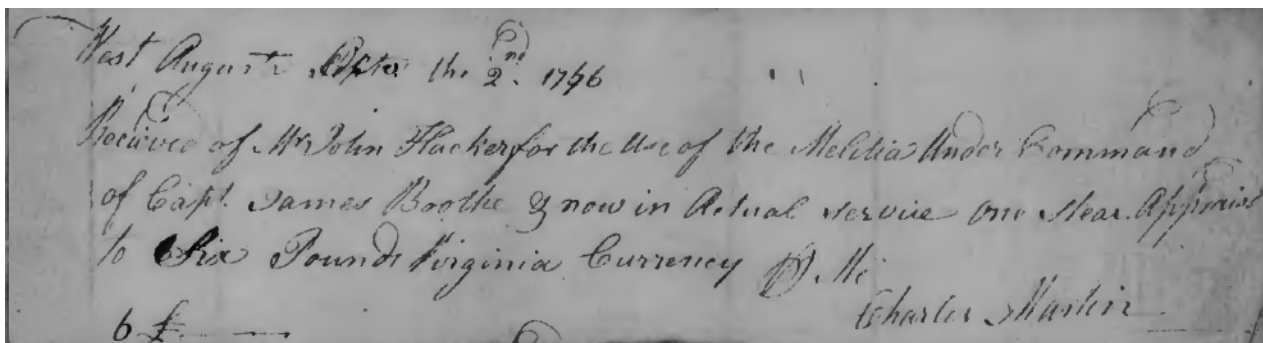 West Augusta Septr. the 2nd. 1776
Received of Mr John Hacker for the Use of the Melitia Under Command
of Capt. James Boothe & now in Actual service one stear Appraisd
to Six Pounds Virginia Currency ⅌ Me
Charles Martin
6 £